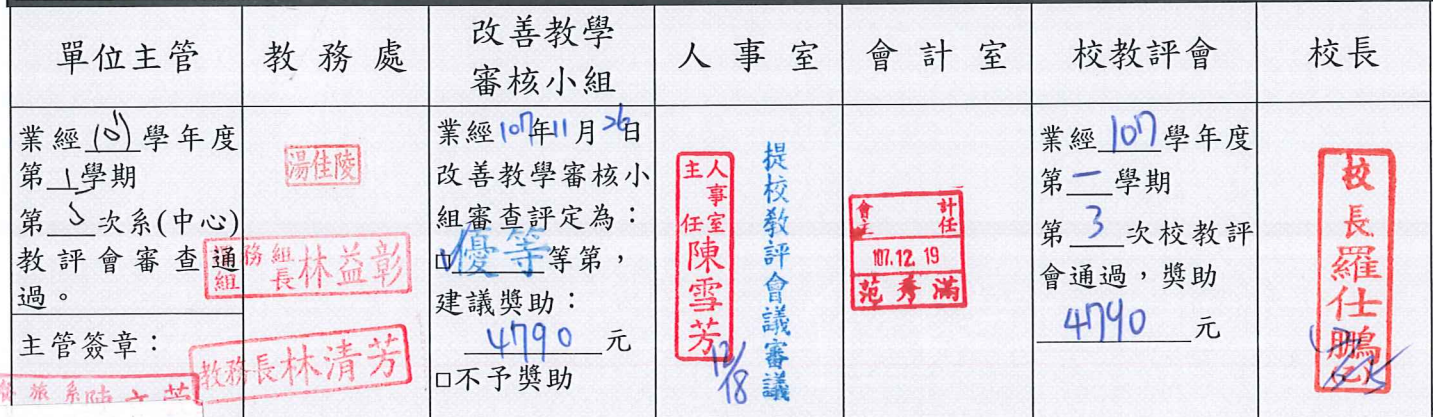 單位主管
教務處
改善教學
審核小組
人事室
會計室
校教評會
校長
業經 學年度
第1學期
第 次系(中心)
教評會審查通
過。
主管簽章：
湯佳陵
課務組
組長林益彰
教務長林清芳
業經107年11月26日
改善教學審核小
組審查評定為：
優等 等第，
建議獎助：
4790元
□不予獎助
人事室
主任陳雪芳
12/18
提校教評會議審議
會計
主任
107.12.19
范秀滿
業經107學年度
第一學期
第3次校教評
會通過，獎助
4790元
校長羅仕鵬